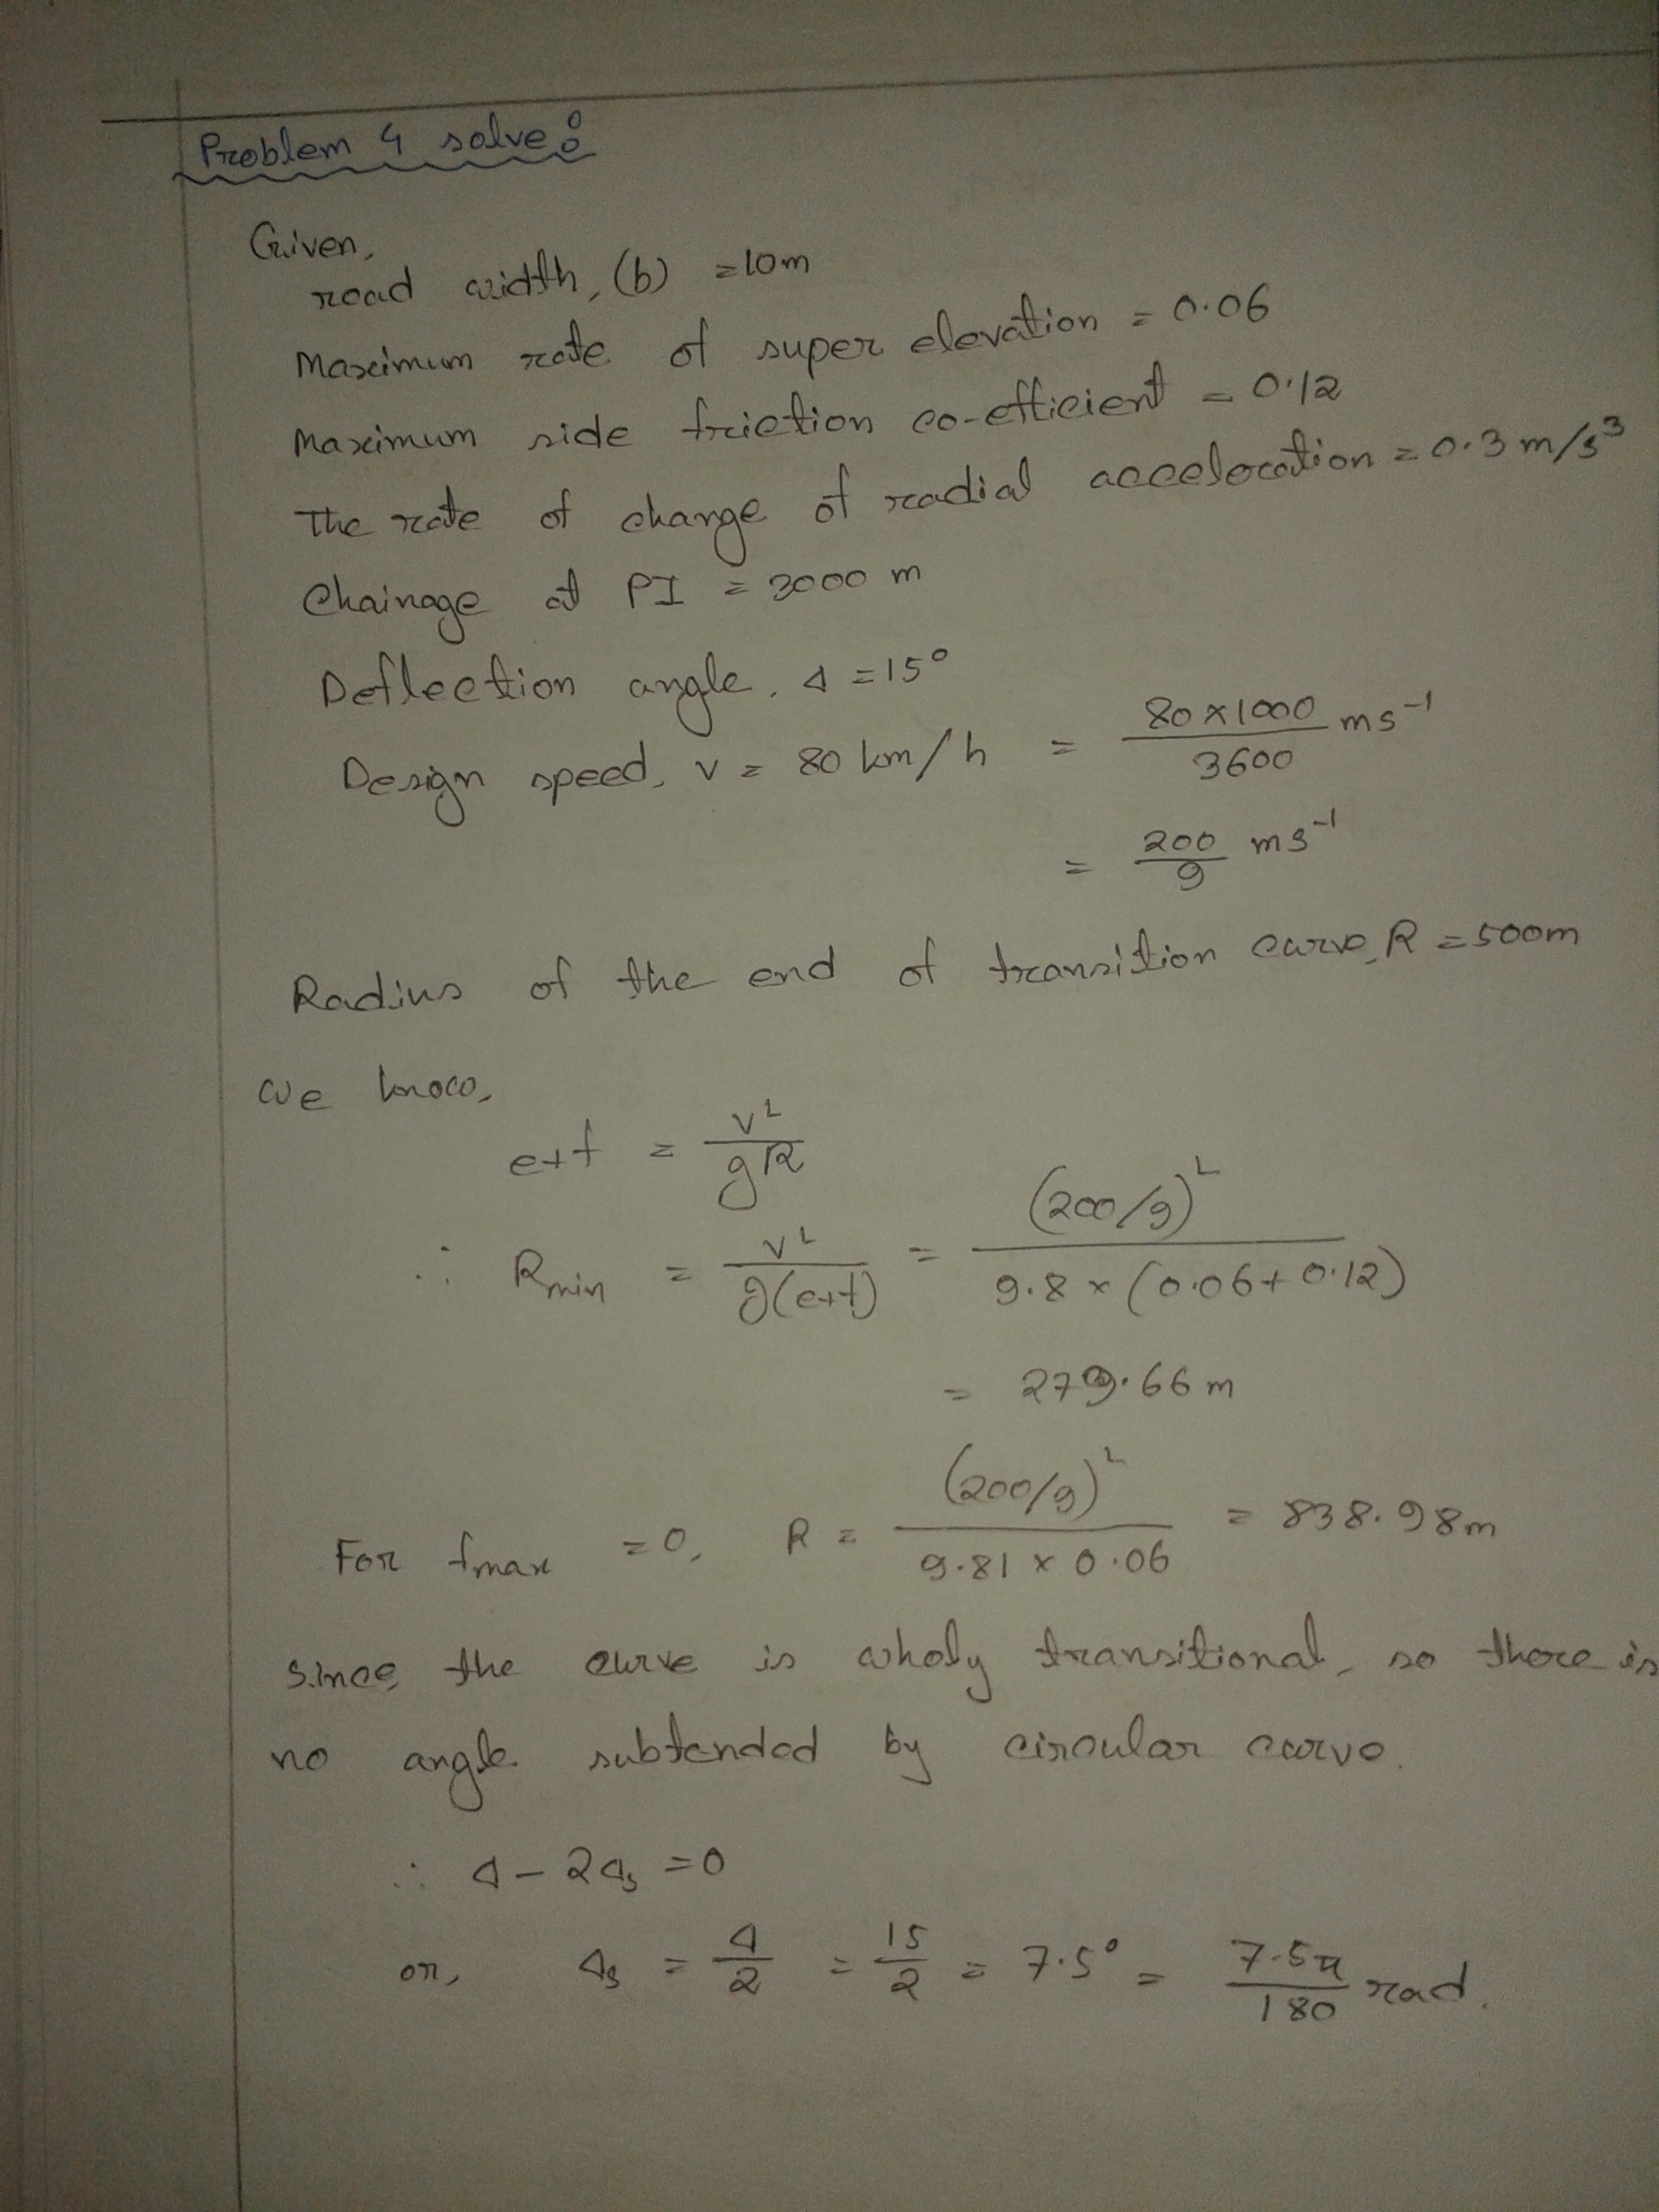 Problem 4 solve:
Given,
road width, (b) = 10m
Maximum rate of super elevation = 0.06
Maximum side friction co-efficient = 0.12
The rate of change of radial acceleration = 0.3 m/s³
Chainage at PI = 3000 m
Deflection angle, Δ = 15°
Design speed, v = 80 km/h = (80×1000)/3600 ms⁻¹
= 200/9 ms⁻¹
Radius of the end of transition curve, R = 500m
We know,
e+f = v²/gR
∴ Rmin = v²/g(e+f) = (200/9)²/9.8 × (0.06+0.12)
= 279.66 m
For fmax = 0, R = (200/9)²/9.81 × 0.06 = 838.98m
Since, the curve is wholy transitional, so there is
no angle subtended by circular curve.
∴ Δ - 2Δs = 0
or, Δs = Δ/2 = 15/2 = 7.5° = 7.5π/180 rad.